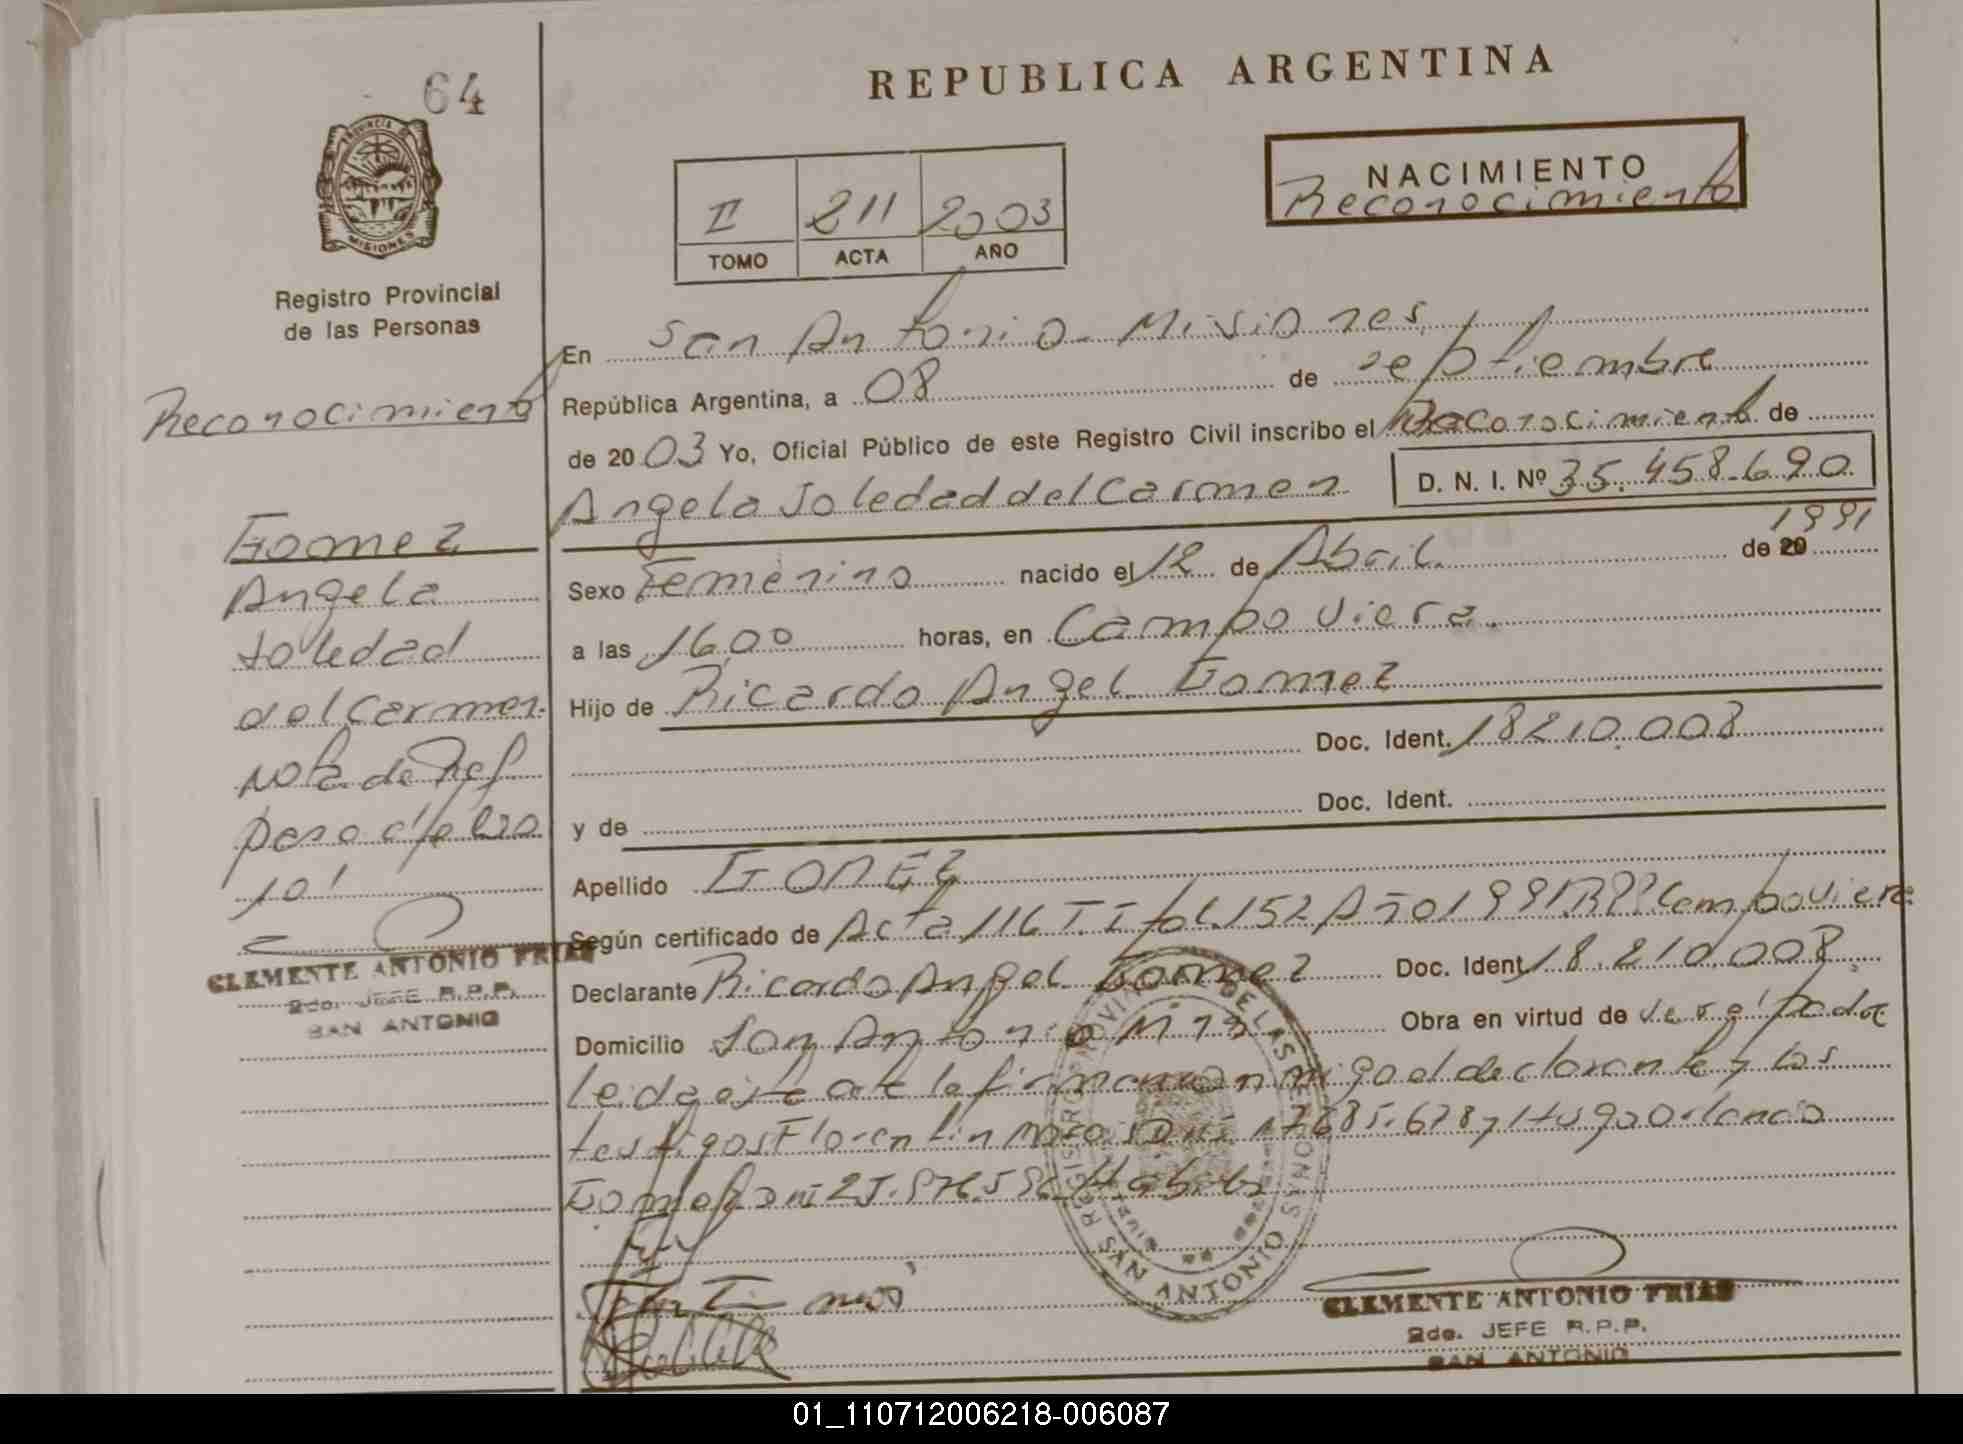 64
REPUBLICA ARGENTINA
PROVINCIA DE
MISIONES
Registro Provincial
de las Personas
II 211 2003
TOMO ACTA AÑO
NACIMIENTO
Reconocimiento
Reconocimiento
Gomez
Angela
Soledad
del Carmen
Nota de Ref
CLEMENTE ANTONIO FRIAS
2do. JEFE R.P.P.
SAN ANTONIO
En San Antonio - Misiones
República Argentina, a 08 de septiembre
de 20 03 Yo, Oficial Público de este Registro Civil inscribo el Reconocimiento de
Angela Soledad del Carmen D. N. I. Nº 35.458.690
Sexo Femenino nacido el 12 de Abril de 20 1991
a las 16,00 horas, en Campo Viera
Hijo de Ricardo Angel Gomez
Doc. Ident. 18210.008
y de Doc. Ident.
Apellido GOMEZ
Según certificado de Acta 116 T.I fol.152 Año 1991 RPP Campo Viera
Declarante Ricardo Angel Gomez Doc. Ident. 18.210.008
Domicilio San Antonio Mns Obra en virtud de ser el padre
leida este acta la firman conmigo el declarante y los
testigos Florentin DNI 17685.678 y Hugo Orlando
Gome DNI
REGISTRO PROVINCIAL DE LAS PERSONAS
SAN ANTONIO
CLEMENTE ANTONIO FRIAS
2do. JEFE R.P.P.
SAN ANTONIO
01_110712006218-006087